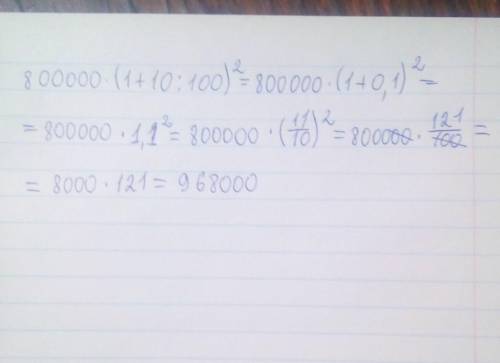 800000·(1+10:100)²=800000·(1+0,1)²=
=800000·1,1²=800000·(11/10)²=800000·121/100=
=8000·121=968000